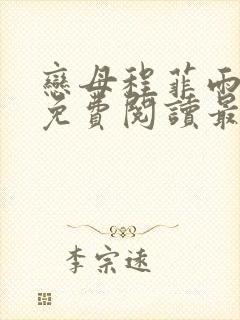 戀母程菲雨
免費閱讀最
李宗遠